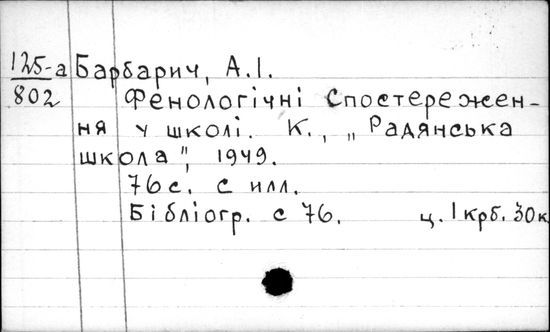 125-а Барбарич, А.І.
802 Фенологічні спостережен-
ня у школі. К., „Радянська
школа", 1949.
76 с. с илл.
Бібліогр. с 76. ц. 1 крб. 30 к